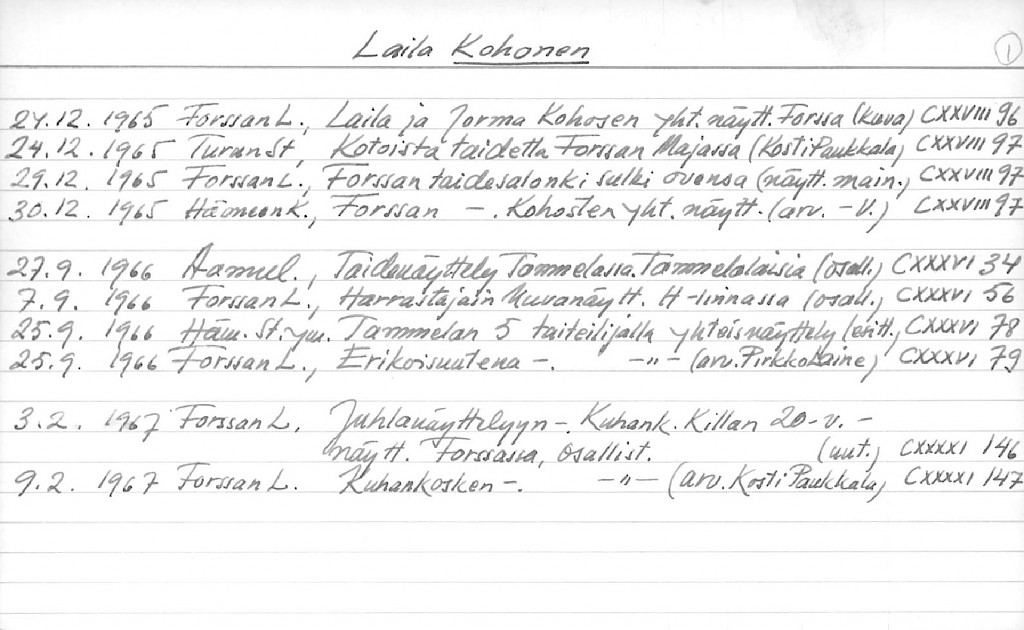 Laila Kohonen
1
24.12. 1965 Forssan L., Laila ja Jorma Kohosen yht. näytt. Forssa (kuva) CXXVIII 96
24.12. 1965 Turun St, Kotoista taidetta Forssan Majassa (Kosti Paukkala, CXXVIII 97
29.12. 1965 Forssan L., Forssan taidesalonki sulki ovensa (näytt. main., CXXVIII 97
30.12. 1965 Hämeen K., Forssan –. Kohosten yht. näytt. (arv. –V.) CXXVIII 97
27.9. 1966 Aamul., Taidenäyttely Tammelassa. Tammelalaisia (osall.) CXXXVI 34
7.9. 1966 Forssan L., Harrastajain kuvanäytt. H-linnassa (osall., CXXXVI 56
25.9. 1966 Häm. St. ym. Tammelan 5 taiteilijalla yhteisnäyttely (eritt., CXXXVI 78
25.9. 1966 Forssan L., Erikoisuutena –. –"– (arv. Pirkko Laine) CXXXVI 79
3.2. 1967 Forssan L. Juhlanäyttelyyn –. Kuhank. Killan 20-v. –
näytt. Forssassa, osallist. (uut.) CXXXXI 146
9.2. 1967 Forssan L. Kuhankosken –. –"– (arv. Kosti Paukkala, CXXXXI 147